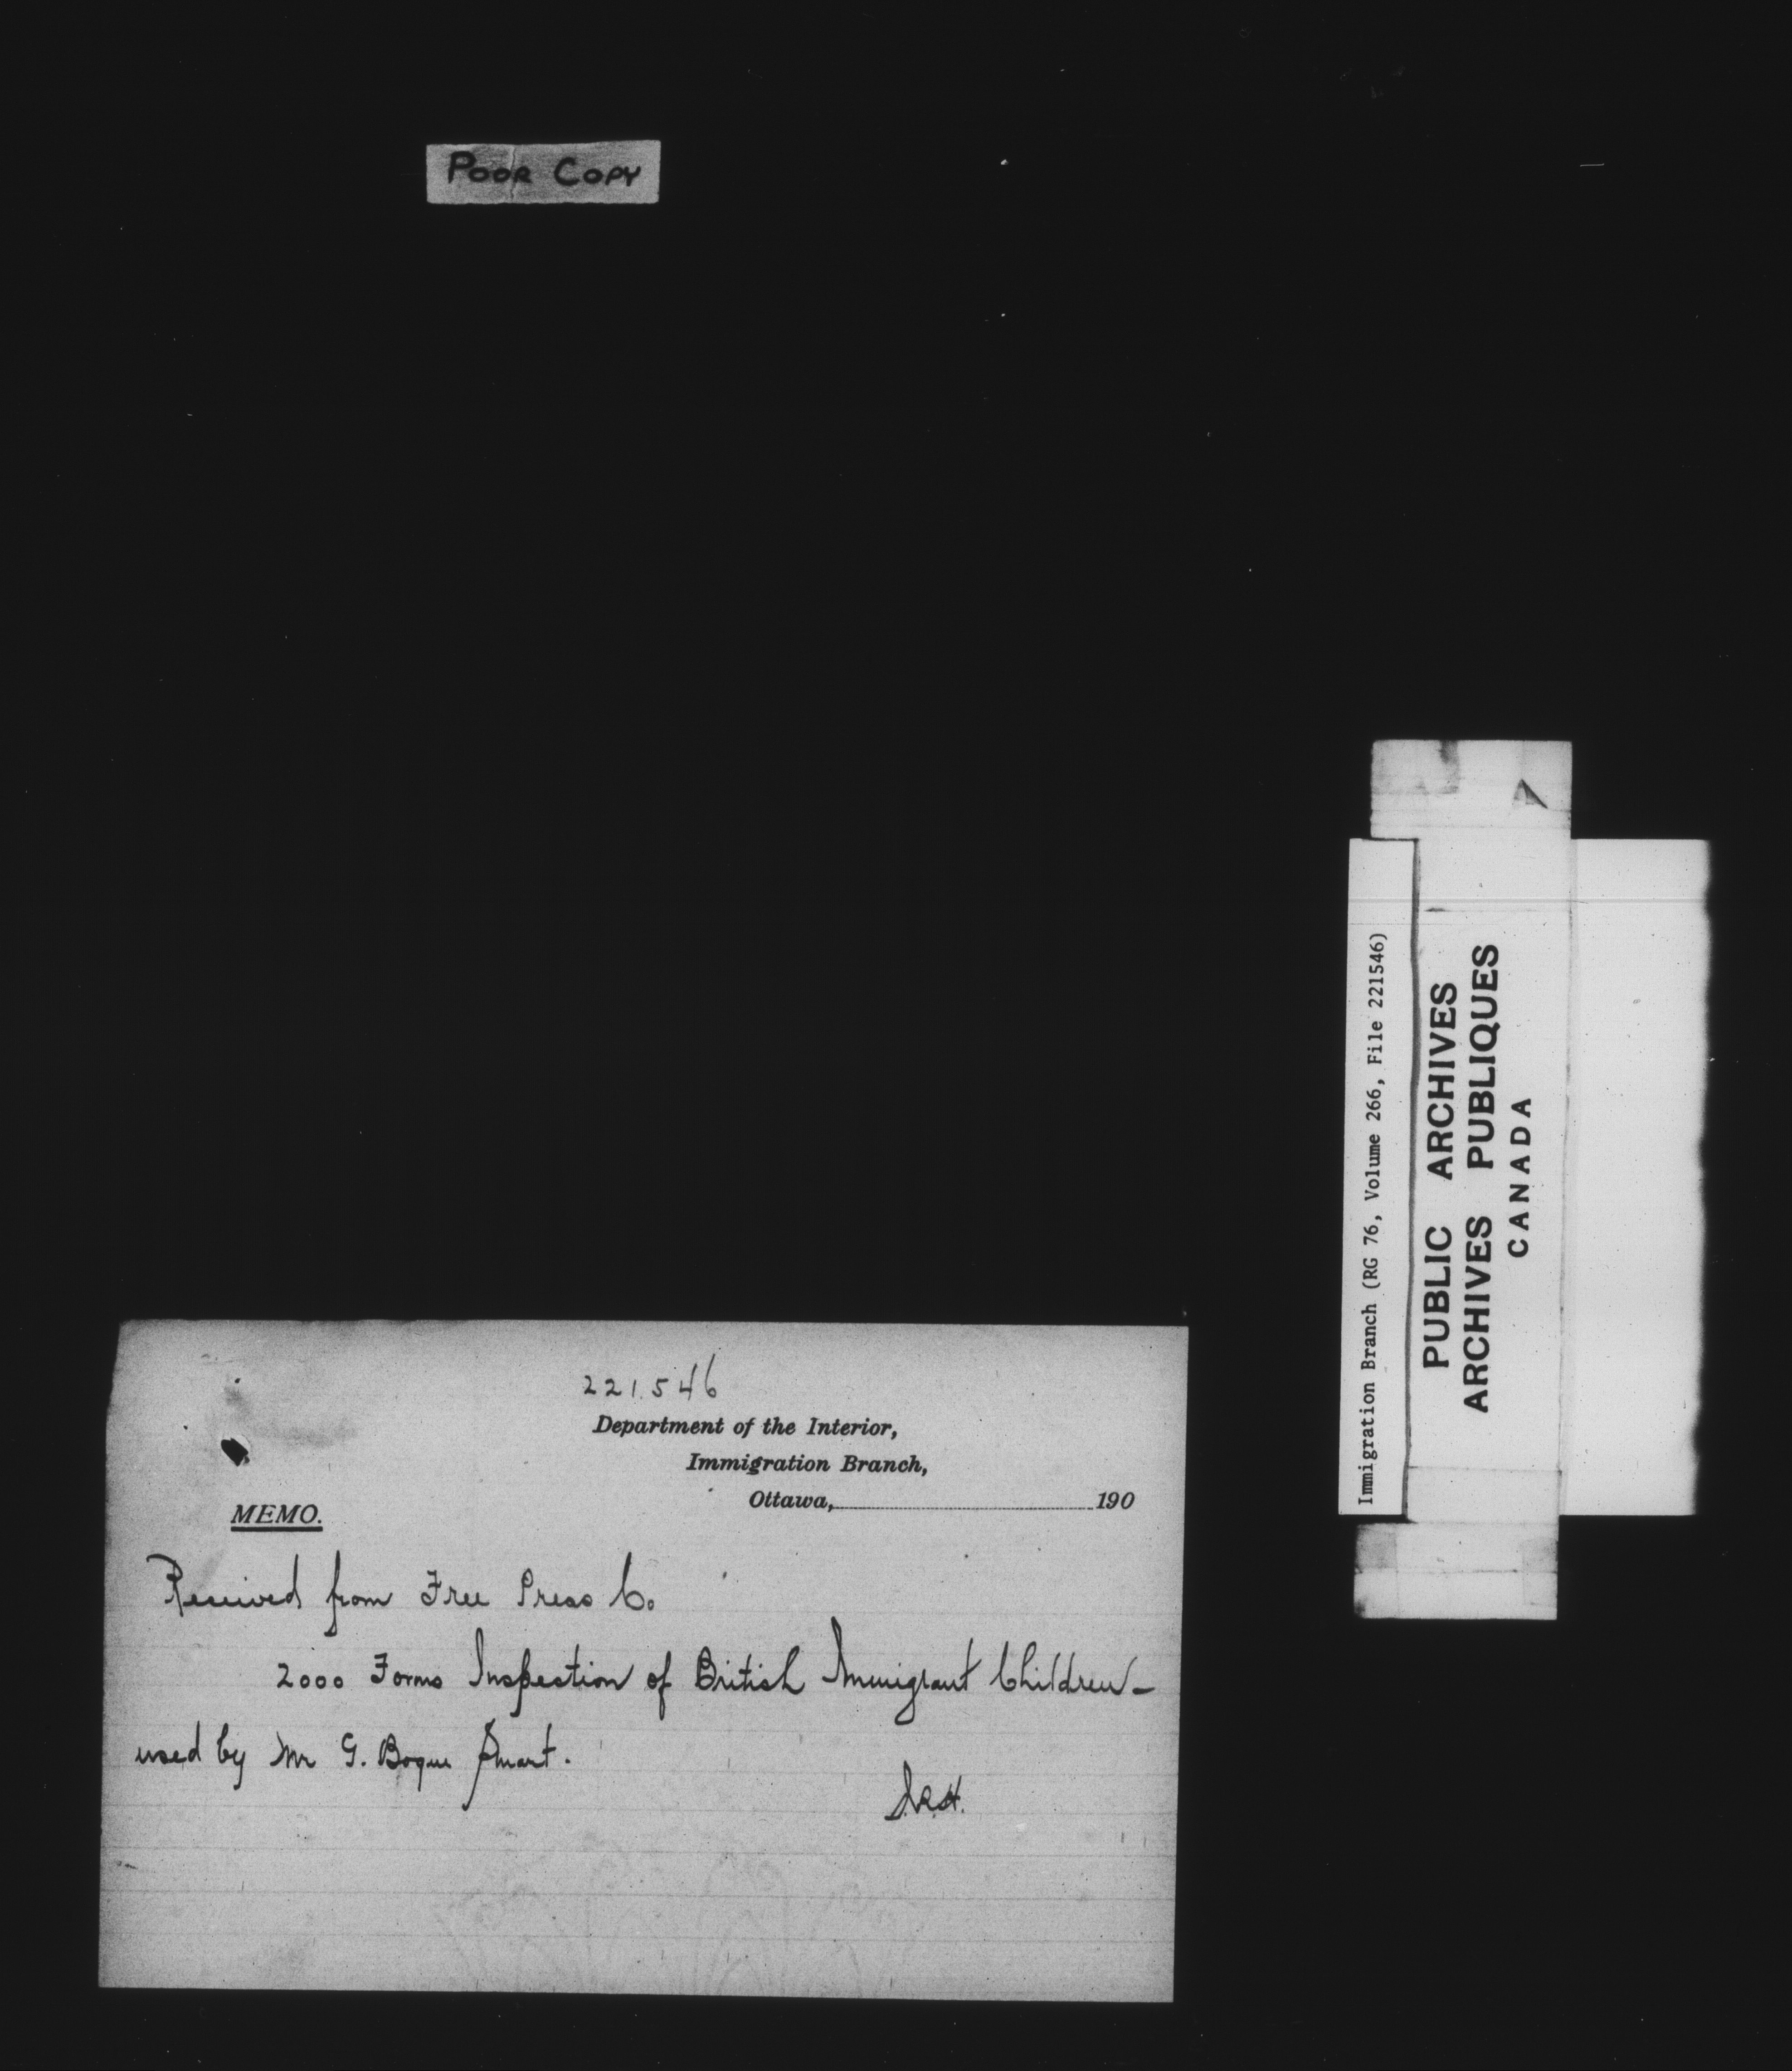 POOR COPY
221546
Department of the Interior,
Immigration Branch,
Ottawa, 190
MEMO.
Received from Free Press Co
2000 Forms Inspection of British Immigrant Children -
used by Mr G. Bogue Smart.
Immigration Branch (RG 76, Volume 266, File 221546)
PUBLIC ARCHIVES
ARCHIVES PUBLIQUES
CANADA